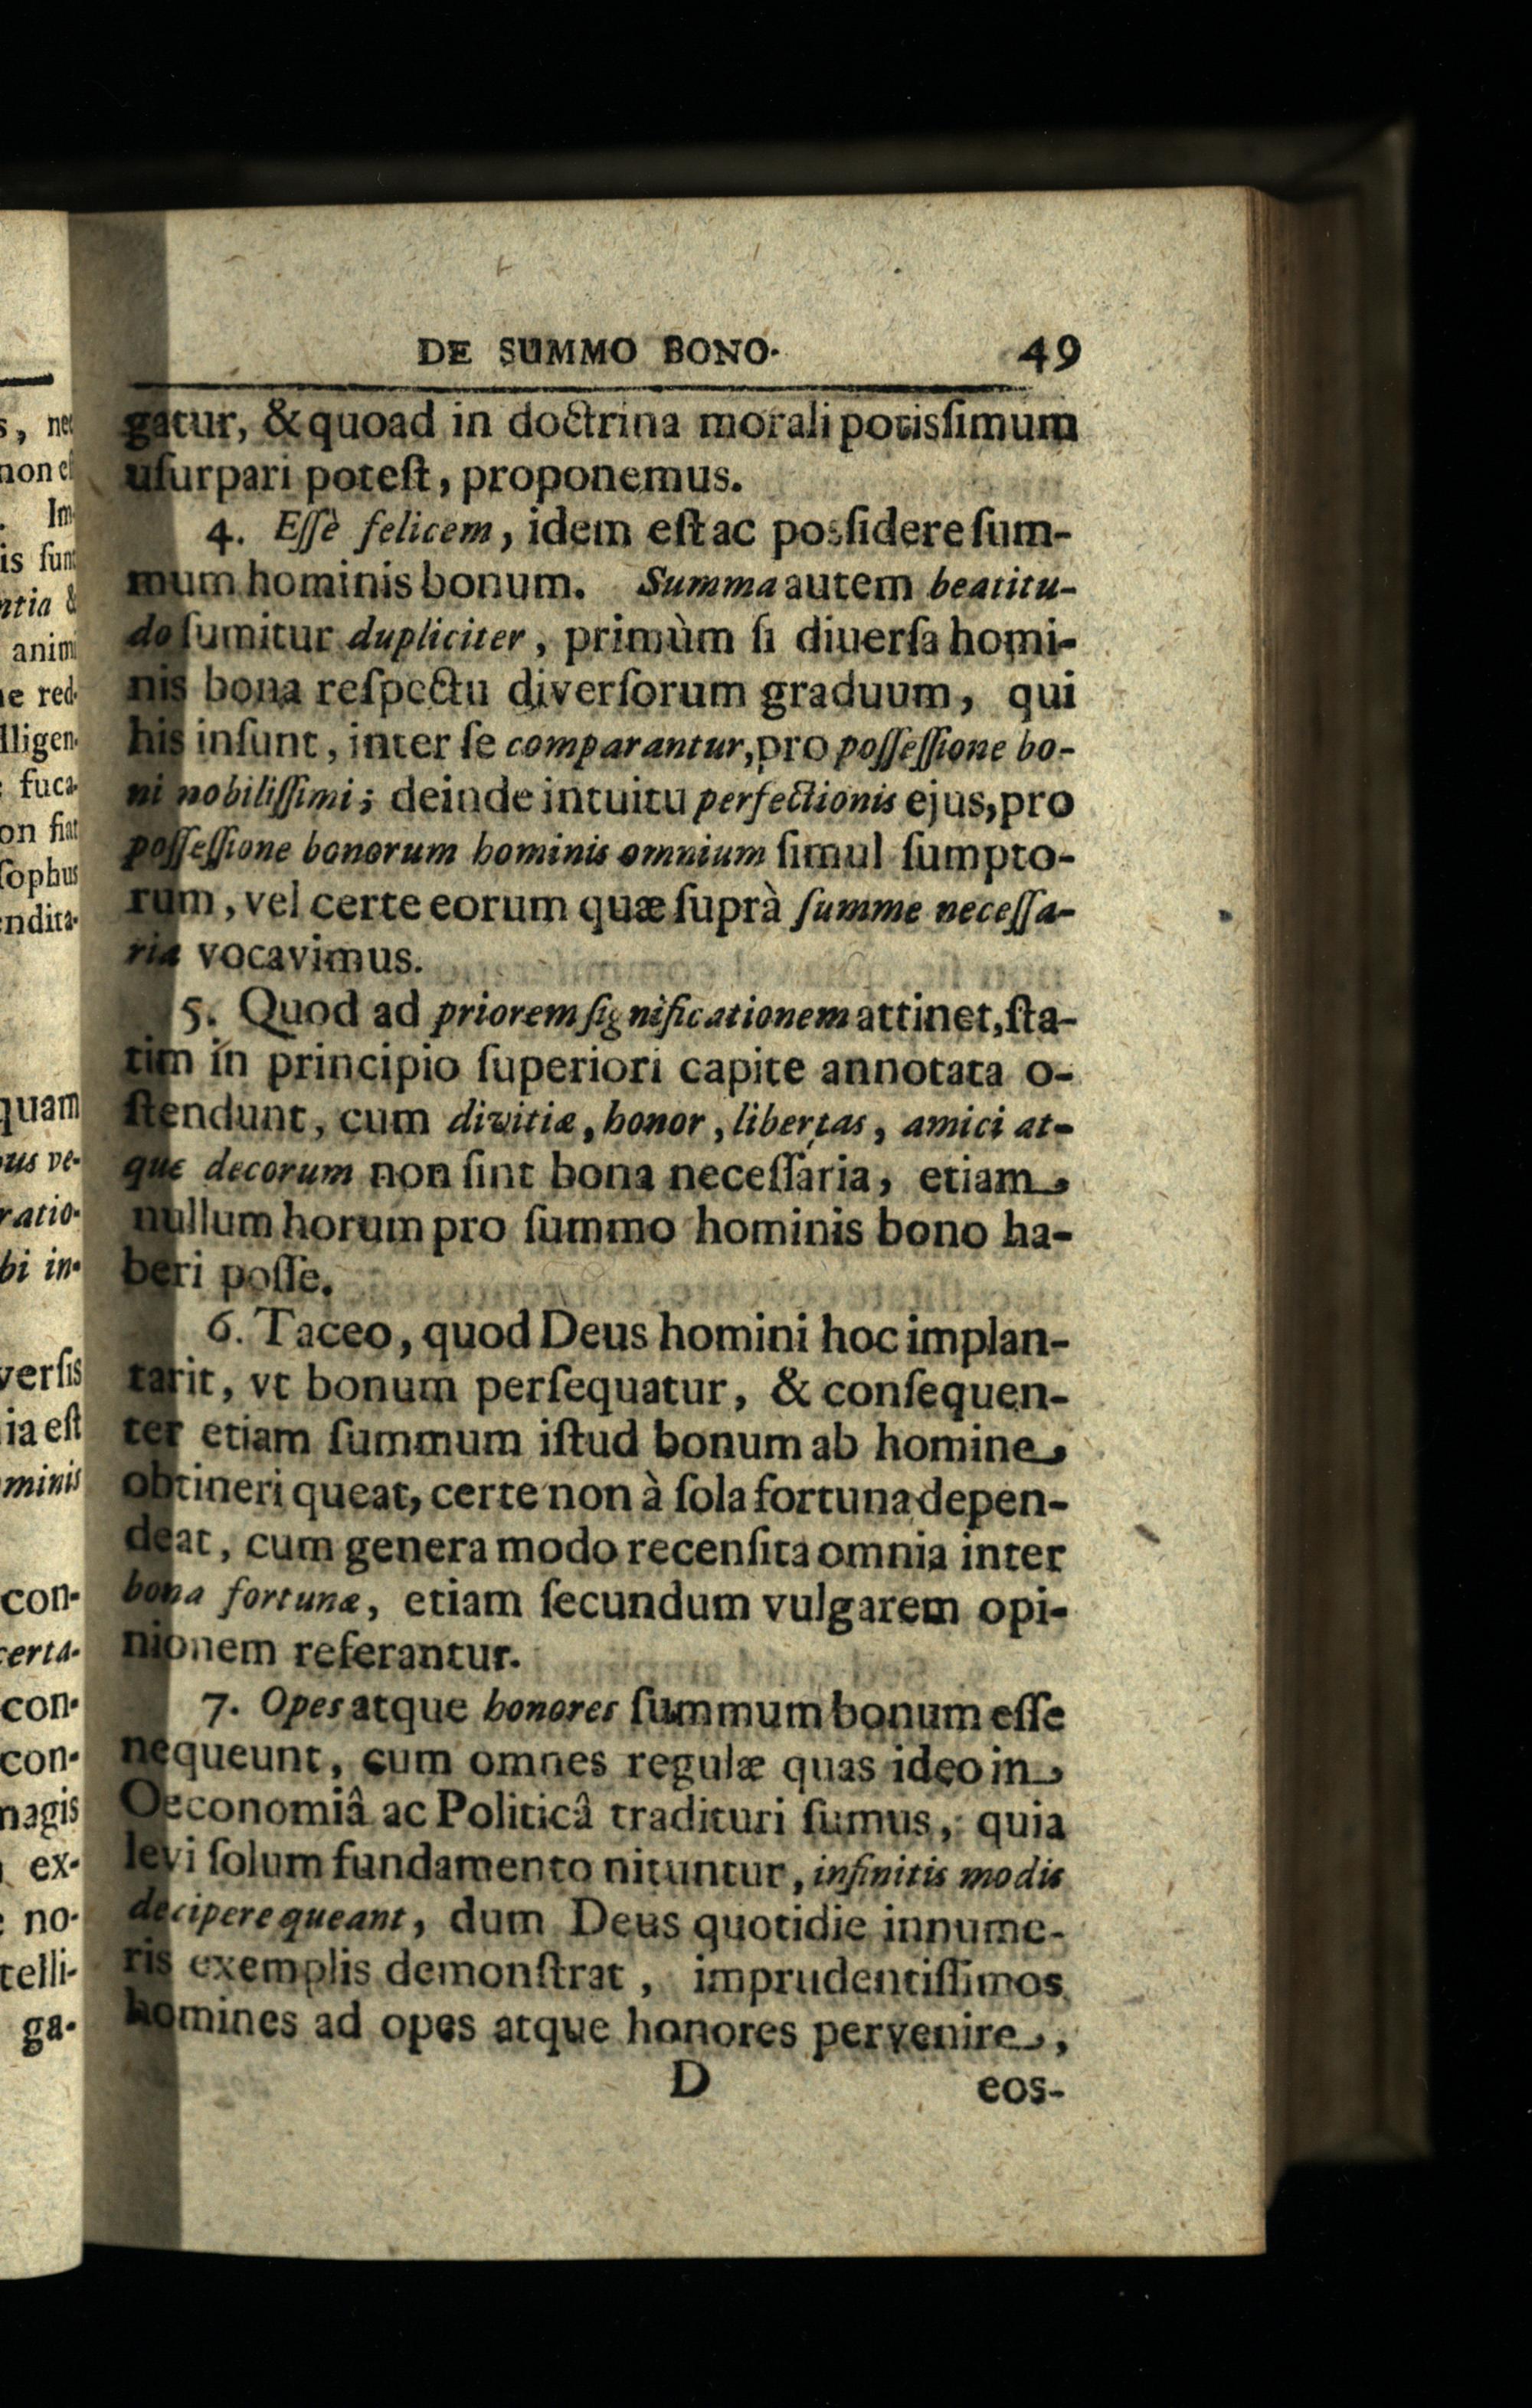 DE SUMMO BONO. 49
gatur, & quoad in doctrina morali potisſimum
uſurpari poteſt, proponemus.
4. Eſſè felicem, idem eſt ac posſidere ſum-
mum hominis bonum. Summa autem beatitu-
do ſumitur dupliciter, primùm ſi diuerſa homi-
nis bona reſpectu diverſorum graduum, qui
his inſunt, inter ſe comparantur, pro poſſeſſione bo-
ni nobiliſſimi; deinde intuitu perfectionis ejus, pro
poſſeſſione bonorum hominis omnium ſimul ſumpto-
rum, vel certe eorum quæ ſuprà ſumme neceſſa-
ria vocavimus.
5. Quod ad priorem ſignificationem attinet, ſta-
tim in principio ſuperiori capite annotata o-
ſtendunt, cum divitiæ, honor, libertas, amici at-
que decorum non ſint bona neceſſaria, etiam
nullum horum pro ſummo hominis bono ha-
beri poſſe.
6. Taceo, quod Deus homini hoc implan-
tarit, vt bonum perſequatur, & conſequen-
ter etiam ſummum iſtud bonum ab homine
obtineri queat, certe non à ſola fortuna depen-
deat, cum genera modo recenſita omnia inter
bona fortunæ, etiam ſecundum vulgarem opi-
nionem referantur.
7. Opes atque honores ſummum bonum eſſe
nequeunt, cum omnes regulæ quas ideo in
Oeconomiâ ac Politicâ tradituri ſumus, quia
levi ſolum fundamento nituntur, infinitis modis
decipere queant, dum Deus quotidie innume-
ris exemplis demonſtrat, imprudentiſſimos
homines ad opes atque honores pervenire,
D eos-